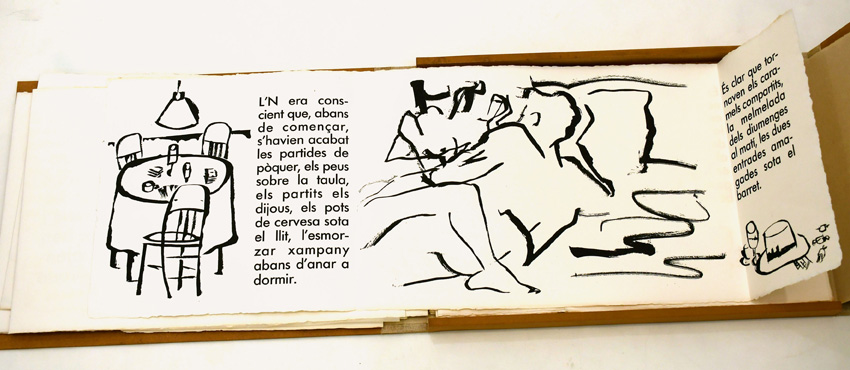 L'N era cons-
cient que, abans
de començar,
s'havien acabat
les partides de
pòquer, els peus
sobre la taula,
els partits els
dijous, els pots
de cervesa sota
el llit, l'esmor-
zar xampany
abans d'anar a
dormir.
És clar que tor-
naven els cara-
mels compartits,
la melmelada
dels diumenges
al matí, les dues
entrades ama-
gades sota el
barret.